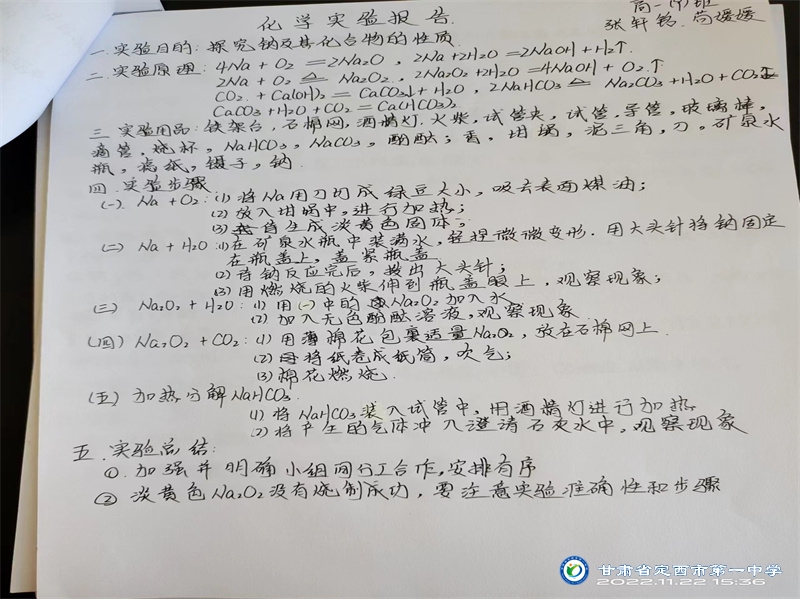 化学实验报告.
高一
张轩铭.苟媛媛
一.实验目的:探究钠及其化合物的性质
二.实验原理:4Na+O₂=2Na₂O,2Na+2H₂O=2NaOH+H₂↑.
2Na+O₂ △ Na₂O₂.2Na₂O₂+2H₂O=4NaOH+O₂.↑
CO₂+Ca(OH)₂=CaCO₃↓+H₂O,2NaHCO₃ △ Na₂CO₃+H₂O+CO₂↑
CaCO₃+H₂O+CO₂=Ca(HCO₃)₂
三.实验用品:铁架台,石棉网,酒精灯.火柴,试管夹,试管,导管,玻璃棒,
滴管,烧杯,NaHCO₃,NaCO₃,酚酞;香,坩埚,泥三角,刀。矿泉水
瓶,滤纸,镊子,钠.
四.实验步骤
(一).Na+O₂:(1)将Na用刀切成绿豆大小,吸去表面煤油;
(2)放入坩埚中,进行加热;
(3)生成淡黄色固体;
(二)Na+H₂O:(1)在矿泉水瓶中装满水,轻捏微微变形.用大头针将钠固定
在瓶盖上,盖紧瓶盖
(2)待钠反应完后,拨出大头针;
(3)用燃烧的火柴伸到瓶盖眼上.观察现象;
(三)Na₂O₂+H₂O:(1)用(一)中的Na₂O₂加入水
(2)加入无色酚酞溶液,观察现象
(四)Na₂O₂+CO₂:(1)用薄棉花包裹适量Na₂O₂,放在石棉网上.
(2)将纸卷成纸筒,吹气;
(3)棉花燃烧.
(五)加热分解NaHCO₃.
(1)将NaHCO₃装入试管中,用酒精灯进行加热
(2)将产生的气体冲入澄清石灰水中,观察现象
五.实验总结:
①.加强并明确小组间分工合作,安排有序
②淡黄色Na₂O₂没有烧制成功,要注意实验准确性和步骤
甘肃省定西市第一中学
2022.11.22 15:36